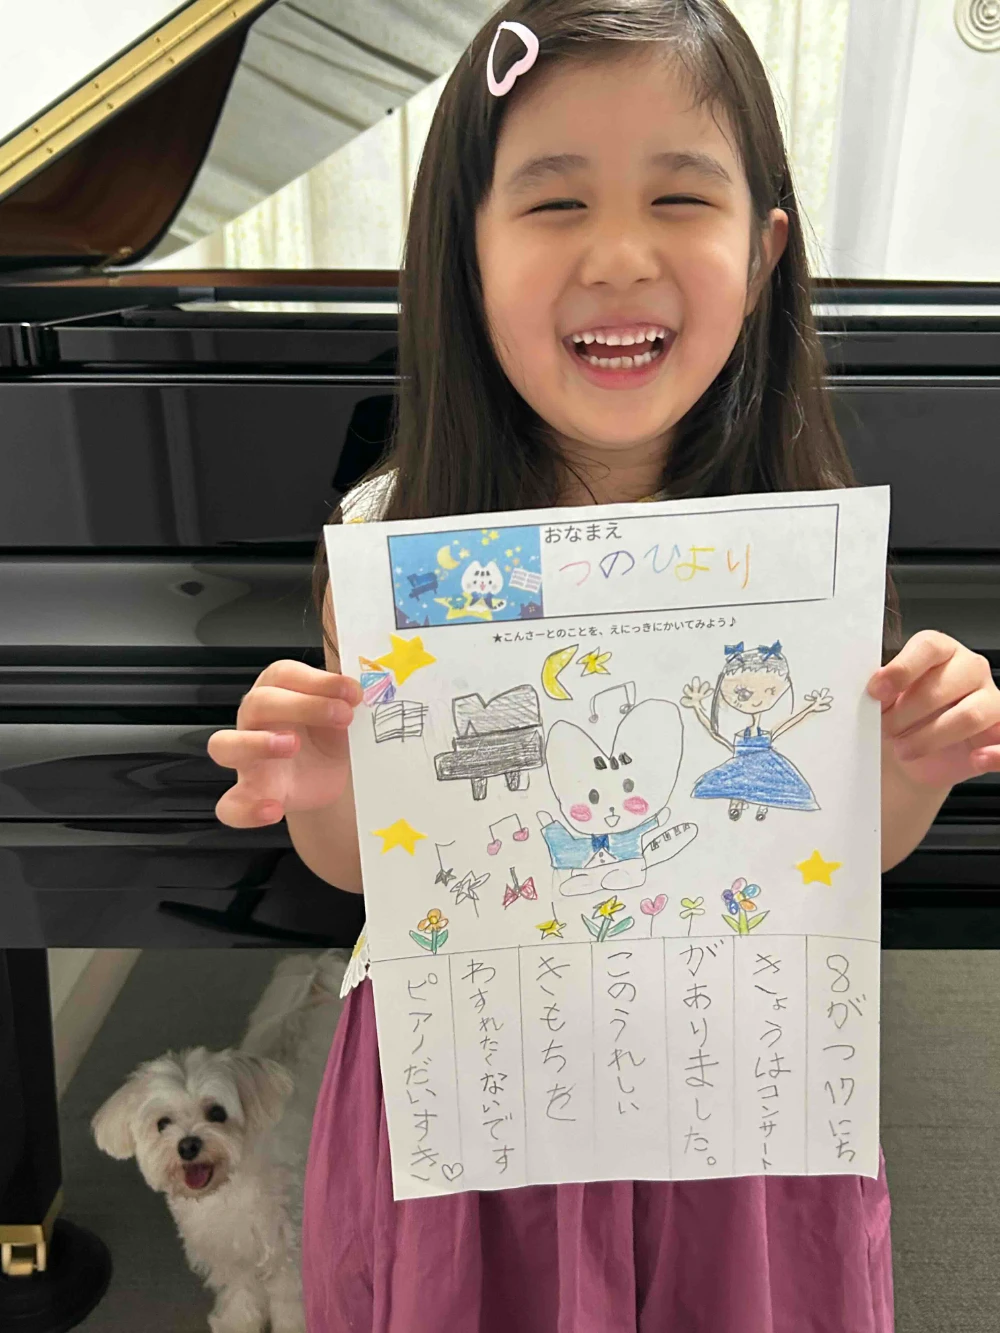 おなまえ
つのひより
★こんさーとのことを、えにっきにかいてみよう♪
8がつ17にち
きょうはコンサート
がありました。
このうれしい
きもちを
わすれたくないです
ピアノだいすき♡